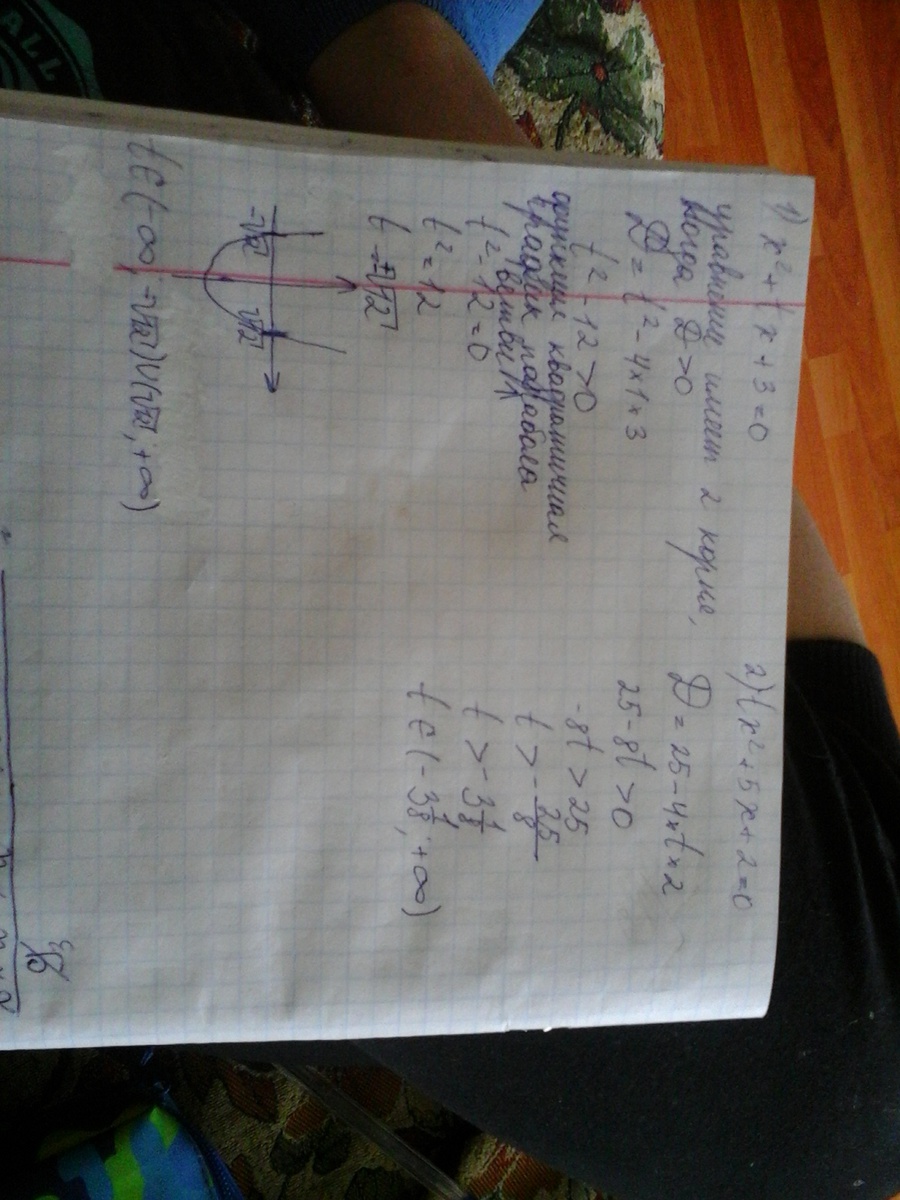 1) x² + tx + 3 = 0
уравнение имеет 2 корня,
когда D > 0
D = t² - 4×1×3
t² - 12 > 0
функция квадратичная
график парабола
ветви
t² - 12 = 0
t² = 12
t = ±√12
-√12 √12
t ∈ (-∞, -√12) ∪ (√12, +∞)
2) tx² + 5x + 2 = 0
D = 25 - 4×t×2
25 - 8t > 0
-8t > 25
t > - 25/8
t > -3 1/8
t ∈ (-3 1/8, +∞)
ALL